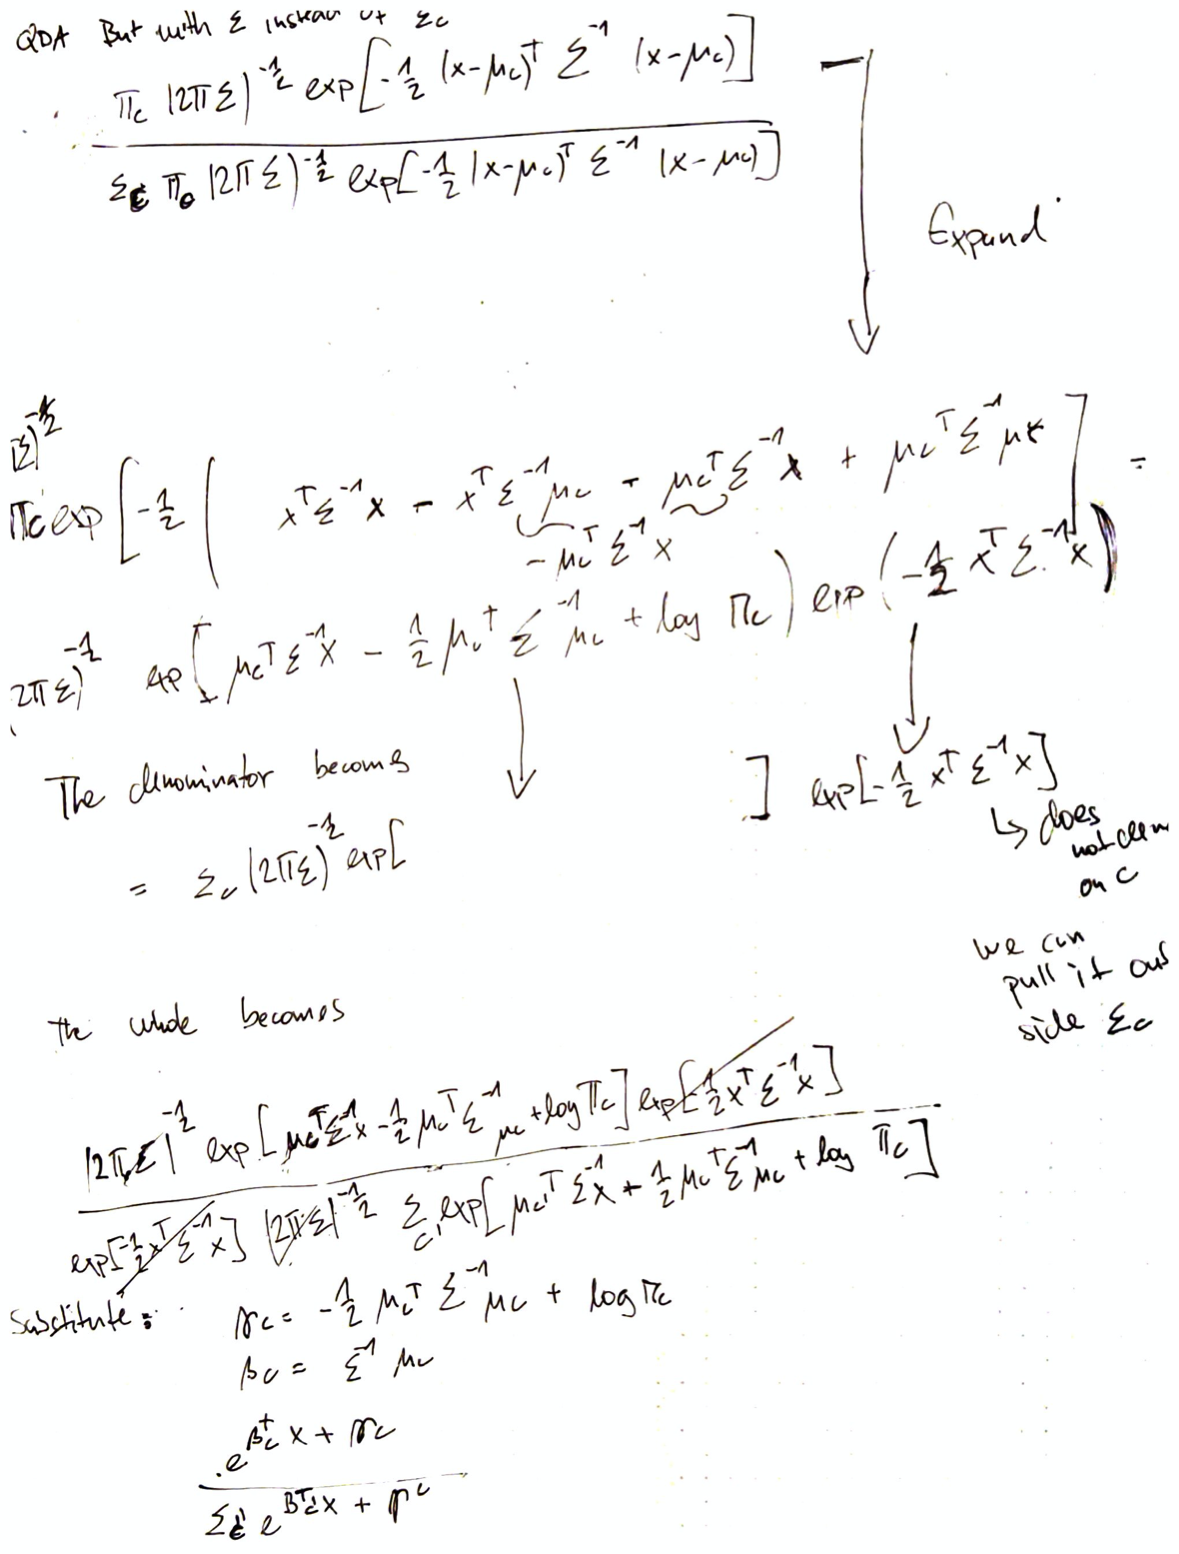 QDA But with Σ instead of Σc
πc |2πΣ|^-1/2 exp[-1/2 (x-μc)^T Σ^-1 (x-μc)]
Σc πc |2πΣ|^-1/2 exp[-1/2 (x-μc)^T Σ^-1 (x-μc)]
Expand
|Σ|^-1/2
πc exp[-1/2 ( x^T Σ^-1 x - x^T Σ^-1 μc - μc^T Σ^-1 x + μc^T Σ^-1 μc ] =
- μc^T Σ^-1 x
2πΣ)^-1/2 exp[ μc^T Σ^-1 x - 1/2 μc^T Σ^-1 μc + log πc ) exp(-1/2 x^T Σ^-1 x)
The denominator becomes
= Σc (2πΣ)^-1/2 exp[ ] exp[-1/2 x^T Σ^-1 x]
↳ does
not
on c
we can
pull it out
side Σc
the whole becomes
|2πΣ|^-1/2 exp[μc^T Σ^-1 x - 1/2 μc^T Σ^-1 μc + log πc] exp[-1/2 x^T Σ^-1 x]
exp[-1/2 x^T Σ^-1 x] |2πΣ|^-1/2 Σc' exp[μc'^T Σ^-1 x + 1/2 μc^T Σ^-1 μc + log πc]
Substitute: γc = -1/2 μc^T Σ^-1 μc + log πc
βc = Σ^-1 μc
e^βc^T x + γc
Σc' e^βc'^T x + γc